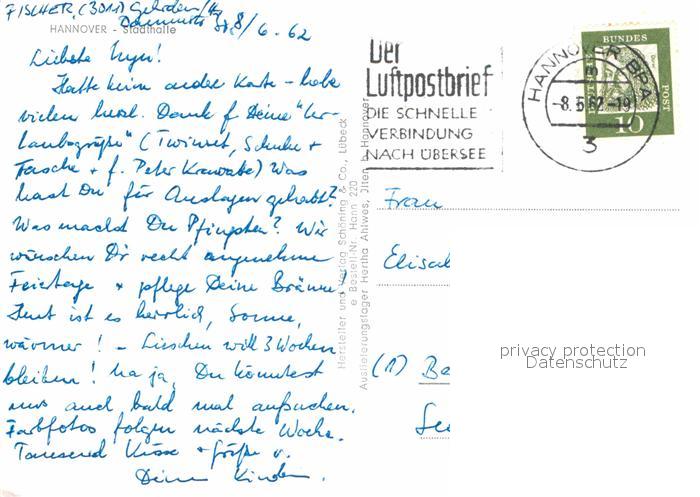 FISCHER, (3011) Gehrden/H
8/6.62
HANNOVER - Stadthalle
Liebste
Hatte keine andere Karte - habe
vielen herzl. Dank f. Deine "Ur-
laubsgrüße" (Twinset, Schuhe +
Tasche + f. Peter Krawatte) Was
hast Du für Auslagen gehabt?
Was machst Du Pfingsten? Wir
wünschen Dir recht angenehme
Feiertage + pflege Deine Bräune!
Heut ist es herrlich, Sonne,
wärmer! - Lieschen will 3 Wochen
bleiben! Na ja, Du könntest
uns auch bald mal aufsuchen.
Farbfotos folgen nächste Woche.
Tausend Küsse + Grüße v.
Deinen Kindern.
Hersteller und Verlag Schöning & Co., Lübeck
Bestell-Nr. Hann 220
Auslieferungslager Hertha Ahlwes, Ilten b. Hannover
Der
Luftpostbrief
DIE SCHNELLE
VERBINDUNG
NACH ÜBERSEE
HANNOVER BPA
-8.6.62-19
3
BUNDES
POST
10
Frau
Elisab
(1) Be
privacy protection
Datenschutz